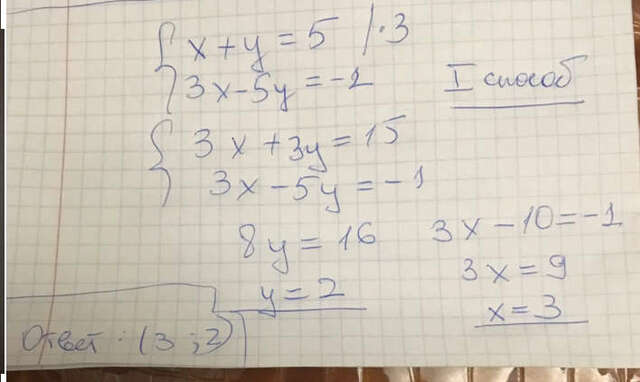 x+y=5 /·3
3x-5y=-1
I способ
3x+3y=15
3x-5y=-1
8y=16
y=2
3x-10=-1
3x=9
x=3
Ответ: (3;2)